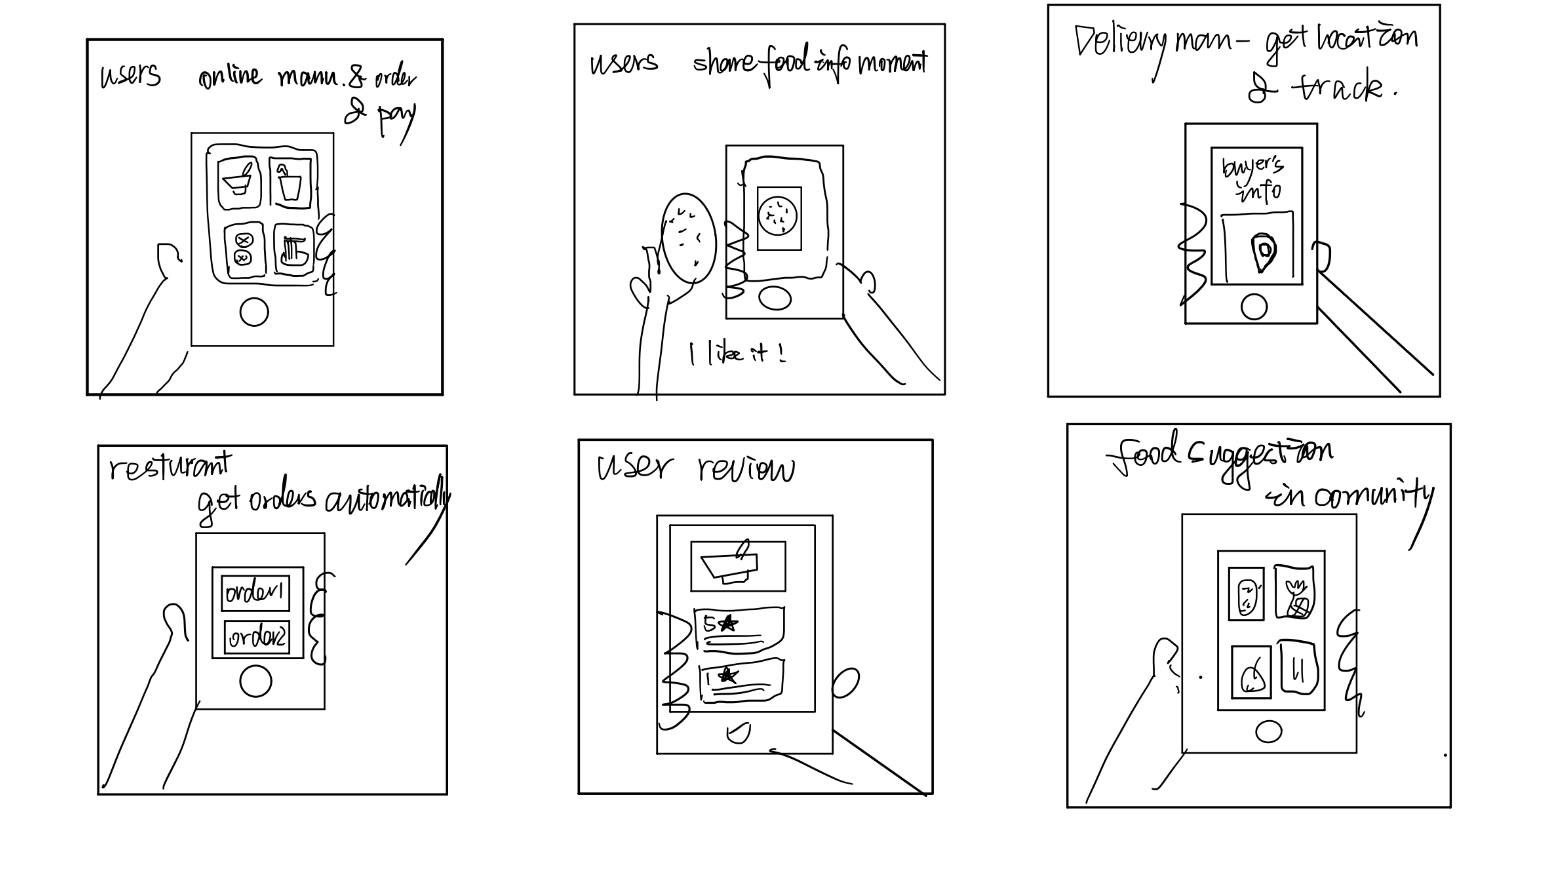 users online manu. & order
& pay
users share food info moment
I like it!
Delievry man - get location
& track.
buyer's
info
resturant
get orders automatically
order1
order2
user review
5★
1★
food suggestion
in comunity